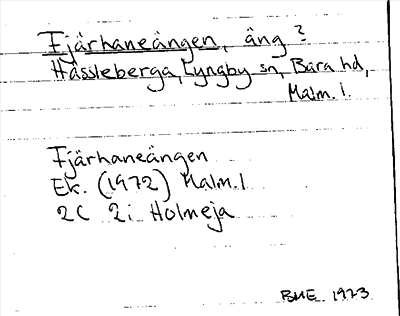 Fjärhaneängen, äng?
Hässleberga, Lyngby sn, Bara hd,
Malm. l.
Fjärhaneängen
Ek. (1972) Malm. l
2C 2i Holmeja
BME 1973